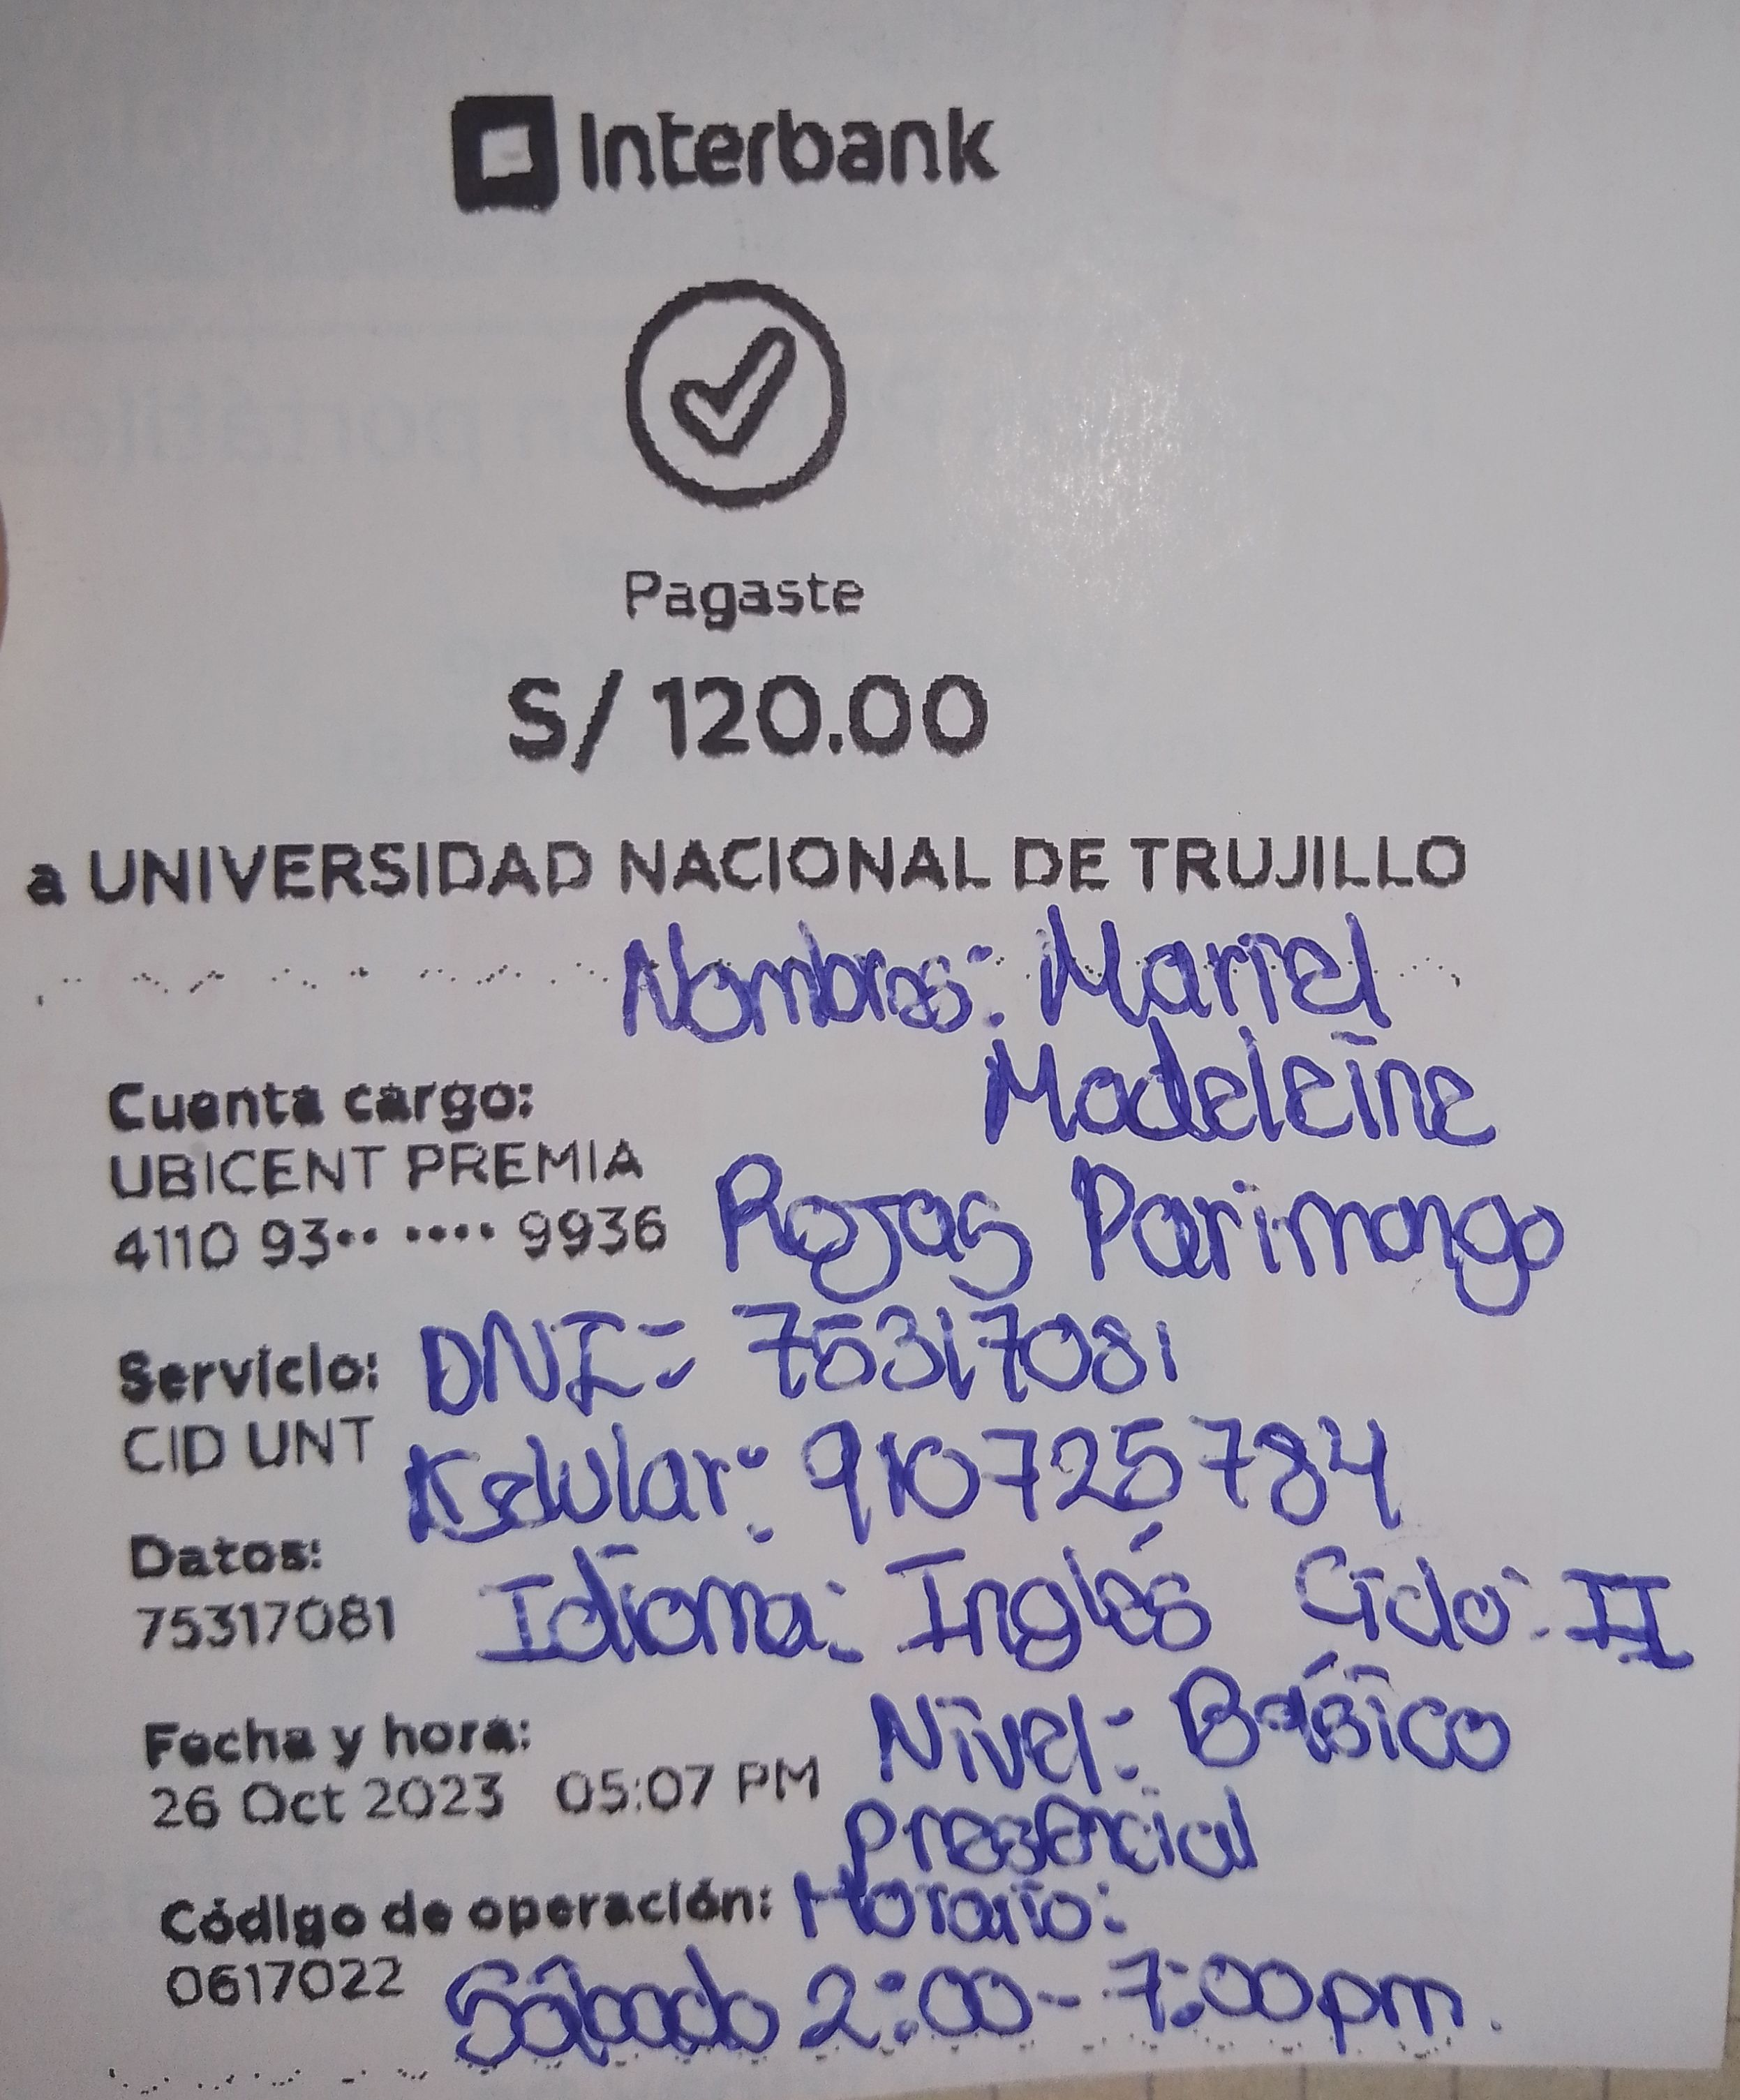 Interbank
Pagaste
S/ 120.00
a UNIVERSIDAD NACIONAL DE TRUJILLO
Nombres: Mariel
Madeleine
Cuenta cargo:
UBICENT PREMIA
4110 93•• •••• 9936
Rojas Parimango
Servicio:
CID UNT
DNI: 75317081
Kelular: 910725784
Datos:
75317081
Idioma: Inglés Ciclo: II
Nivel: Básico
Fecha y hora:
26 Oct 2023 05:07 PM
Presencial
Código de operación:
0617022
Horario:
Sábado 2:00 - 7:00 pm.